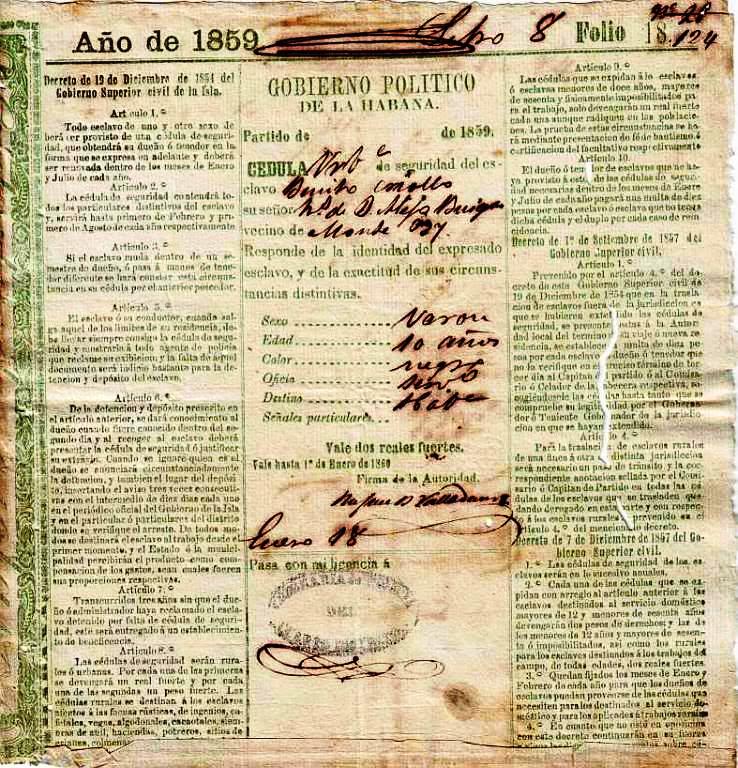 Año de 1859
Libro 8 Folio 18.
124
Decreto de 19 de Diciembre de 1854 del
Gobierno Superior civil de la Isla.
Artículo 1.º
Todo esclavo de uno y otro sexo de
berá ser provisto de una cédula de seguri-
dad, que obtendrá su dueño ó tenedor en la
forma que se espresa en adelante y deberá
ser renovada dentro de los meses de Enero
y Julio de cada año.
Artículo 2.º
La cédula de seguridad contendrá to-
dos los particulares distintivos del esclavo
y, servirá hasta primero de Febrero y pri-
mero de Agosto de cada año respectivamente
Artículo 3.º
Si el esclavo muda dentro de un se-
mestre de dueño, ó pasa á manos de tene-
dor diferente se hará constar esta circuns-
tancia en su cédula por el anterior poseedor.
Artículo 5.º
El esclavo ó su conductor, cuando sal-
ga aquel de los límites de su residencia, de-
be llevar siempre consigo la cédula de segu-
ridad y mostrarla á todo agente de policía
que reclame su exibicion; y la falta de aquel
documento será indicio bastante para la de-
tencion y depósito del esclavo.
Artículo 6.º
De la detencion y depósito prescrito en
el artículo anterior, se dará conocimiento al
dueño cuando fuere conocido dentro del se-
gundo dia y al recoger al esclavo deberá
presentar la cédula de seguridad ó justificar
su estravío. Cuando se ignore quien es el
dueño se anunciará circunstanciadamente
la detencion, y tambien el lugar del depósi-
to, insertando el aviso tres veces consecuti-
vas con el intermedio de diez dias cada uno
en el periódico oficial del Gobierno de la Isla
y en el particular ó particulares del distrito
donde se verifique el arresto. De todos mo-
dos se destinará el esclavo al trabajo desde el
primer momento, y el Estado ó la munici-
palidad percibirán el producto como com-
pensacion de los gastos, sean cuales fueren
sus proporciones respectivas.
Artículo 7.º
Transcurridos tres años sin que el due-
ño ó administrador haya reclamado el escla-
vo detenido por falta de cédula de seguri-
dad, este será entregado á un establecimien-
to de beneficencia.
Artículo 8.º
Las cédulas de seguridad serán rura-
les ó urbanas. Por cada una de las primeras
se devengará un real fuerte y por cada
una de las segundas un peso fuerte. Las
cédulas rurales se destinan á los esclavos
adictos á las faenas rústicas, de ingenios, ca-
fetales, vegas, algodonales, cacaotales, siem-
bras de añil, haciendas, potreros, sitios de
crianza, colmenas
GOBIERNO POLITICO
DE LA HABANA.
Partido de de 1859.
CEDULA Urb.ª de seguridad del es-
clavo Benito criollo
su señor
vecino de Monte 137.
Responde de la identidad del expresado
esclavo, y de la exactitud de sus circuns-
tancias distintivas.
Sexo Varon
Edad 10 años
Color negro
Oficio
Destino Hab.ª
Señales particulares
Vale dos reales fuertes.
Vale hasta 1º de Enero de 1860
Firma de la Autoridad.
Enero 18
Pase con mi licencia á
Artículo 9.º
Las cédulas que se expidan á los esclavos
ó esclavas menores de doce años, mayores
de sesenta y físicamente imposibilitados pa-
ra el trabajo, solo devengarán un real fuerte
cada una aunque radiquen en las poblacio-
nes. La prueba de estas circunstancias se ha-
rá mediante presentacion de fé de bautismo. ó
certificacion del facultativo respectivamente
Artículo 10.
El dueño ó tenedor de esclavos que no ha-
ya provisto á este, de las cédulas de seguri-
dad necesarias dentro de los meses de Enero
y Julio de cada año pagará una multa de diez
pesos por cada esclavo ó esclava que no tenga
dicha cédula y el duplo por cada caso de rein-
cidencia.
Decreto de 1º de Setiembre de 1857 del
Gobierno Superior civil.
Artículo 1.º
Prevenido por el artículo 4.º del de-
creto de este Gobierno Superior civil de
19 de Diciembre de 1854 que en la trasla-
cion de esclavos fuera de la jurisdiccion en
que se hubieren extendido las cédulas de
seguridad, se presenten estas á la Autori-
dad local del término
Artículo 4.º
Para la traslacion de esclavos rurales
de una finca á otra de distinta jurisdiccion
será necesario un pase de tránsito y la cor-
respondiente anotacion sellada por el Comi-
sario ó Capitan de Partido en todas las cé-
dulas de los esclavos que se trasladen quedan-
do derogado en esta parte y con respec-
to á los esclavos rurales lo prevenido en el
artículo 4.º del mencionado decreto.
Decreto de 7 de Diciembre de 1857 del Go-
bierno Superior civil.
1.º Las cédulas de seguridad de los es-
clavos serán en lo sucesivo anuales.
2.º Cada una de las cédulas que se ex-
pidan con arreglo al artículo anterior á los
esclavos destinados al servicio doméstico
mayores de 12 y menores de sesenta años
devengarán dos pesos de derechos; y las de
los menores de 12 años y mayores de sesen-
ta ó imposibilitados, asi como los rurales
para los esclavos destinados á los trabajos del
campo, de todas edades, dos reales fuertes.
3.º Quedan fijados los meses de Enero y
Febrero de cada año para que los dueños de
esclavos puedan proveerse de las cédulas que
necesiten para los destinados al servicio do-
méstico y para los aplicados á trabajos rurales
4.º En cuanto que no esté en oposicion
con este decreto continuarán en su fuerza